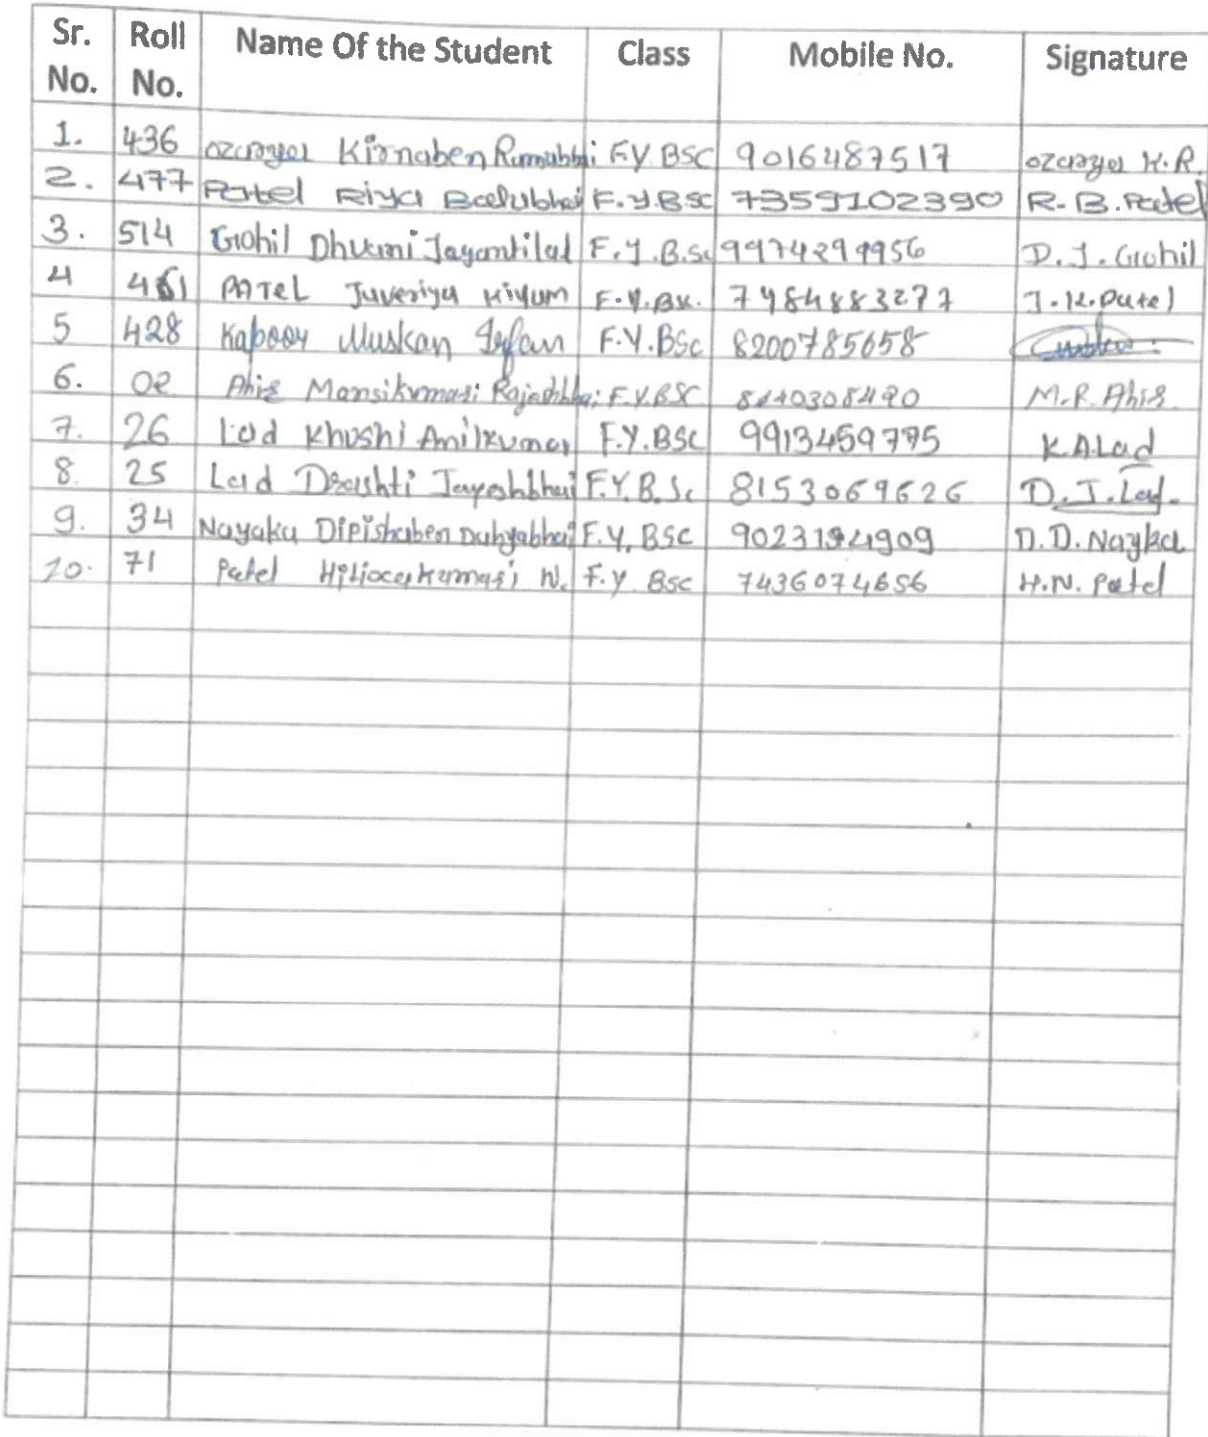 Sr. No. Roll No. Name Of the Student Class Mobile No. Signature
1. 436 Kirnaben F.Y. BSC 9016487517 K.R.
2. 477 Patel Riya Balubhai F.Y.BSC 7359102390 R.B. Patel
3. 514 Gohil Dhvani Jayantilal F.Y.B.Sc 9974299956 D.J. Gohil
4 461 PATEL Juveriya Kiyum F.Y.BSC. 7984883277 J.K. Patel
5 428 Kapoor Muskan Irfan F.Y.BSc 8200785658
6. 02 Ahir Mansikumari Rajeshbhai F.Y.BSC M.R. Ahir
7. 26 Lad Khushi Anilkumar F.Y.BSC 9913459775 K.A.Lad
8. 25 Lad Drashti Jayeshbhai F.Y.B.Sc 8153069626 D.J. Lad.
9. 34 Nayaka Dipishaben Dahyabhai F.Y. BSC 9023194909 D.D. Nayka
10. 71 Patel N. F.Y. Bsc 7436074656 H.N. Patel